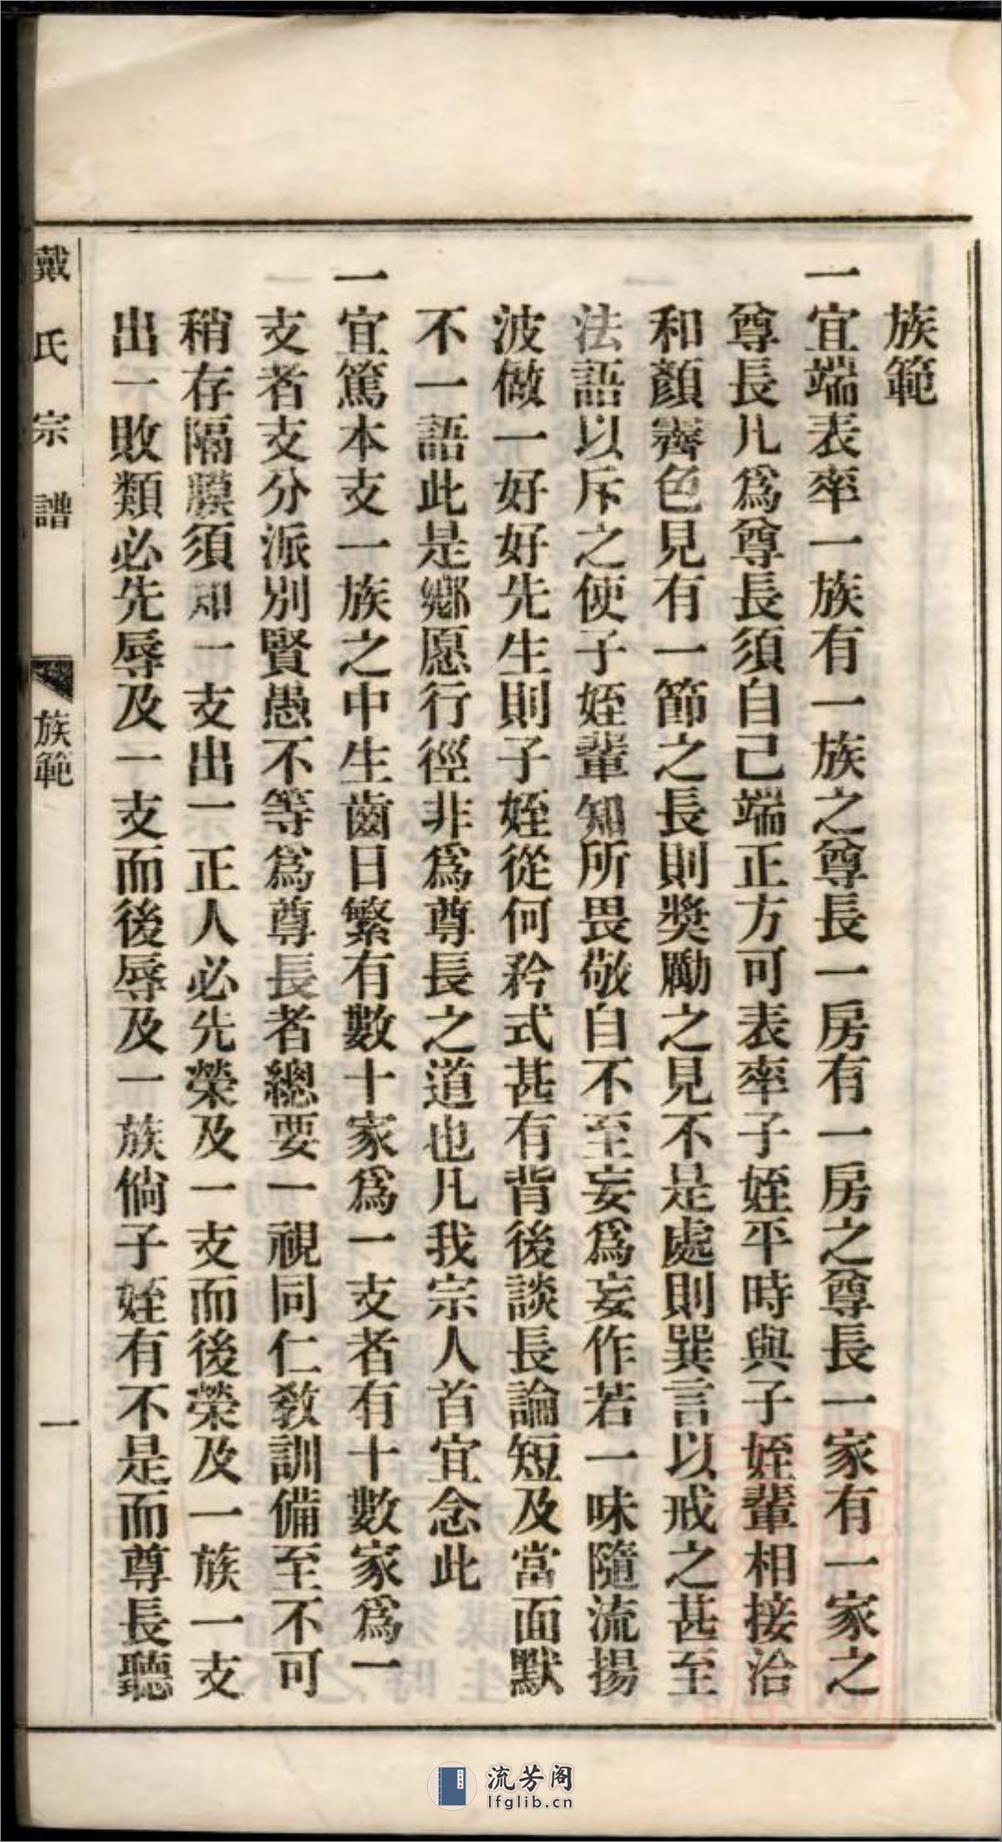 族範
一宜端表率一族有一族之尊長一房有一房之尊長一家有一家之
尊長凡爲尊長須自己端正方可表率子姪平時與子姪輩相接洽
和顏霽色見有一節之長則獎勵之見不是處則巽言以戒之甚至
法語以斥之使子姪輩知所畏敬自不至妄爲妄作若一味隨流揚
波做一好好先生則子姪從何矜式甚有背後談長論短及當面默
不一語此是鄉愿行徑非爲尊長之道也凡我宗人首宜念此
一宜篤本支一族之中生齒日繁有數十家爲一支者有十數家爲一
支者支分派別賢愚不等爲尊長者總要一視同仁敎訓備至不可
稍存隔膜須知一支出一正人必先榮及一支而後榮及一族一支
出一敗類必先辱及一支而後辱及一族倘子姪有不是而尊長聽
戴氏宗譜
族範
一
流芳阁
lfglib.cn